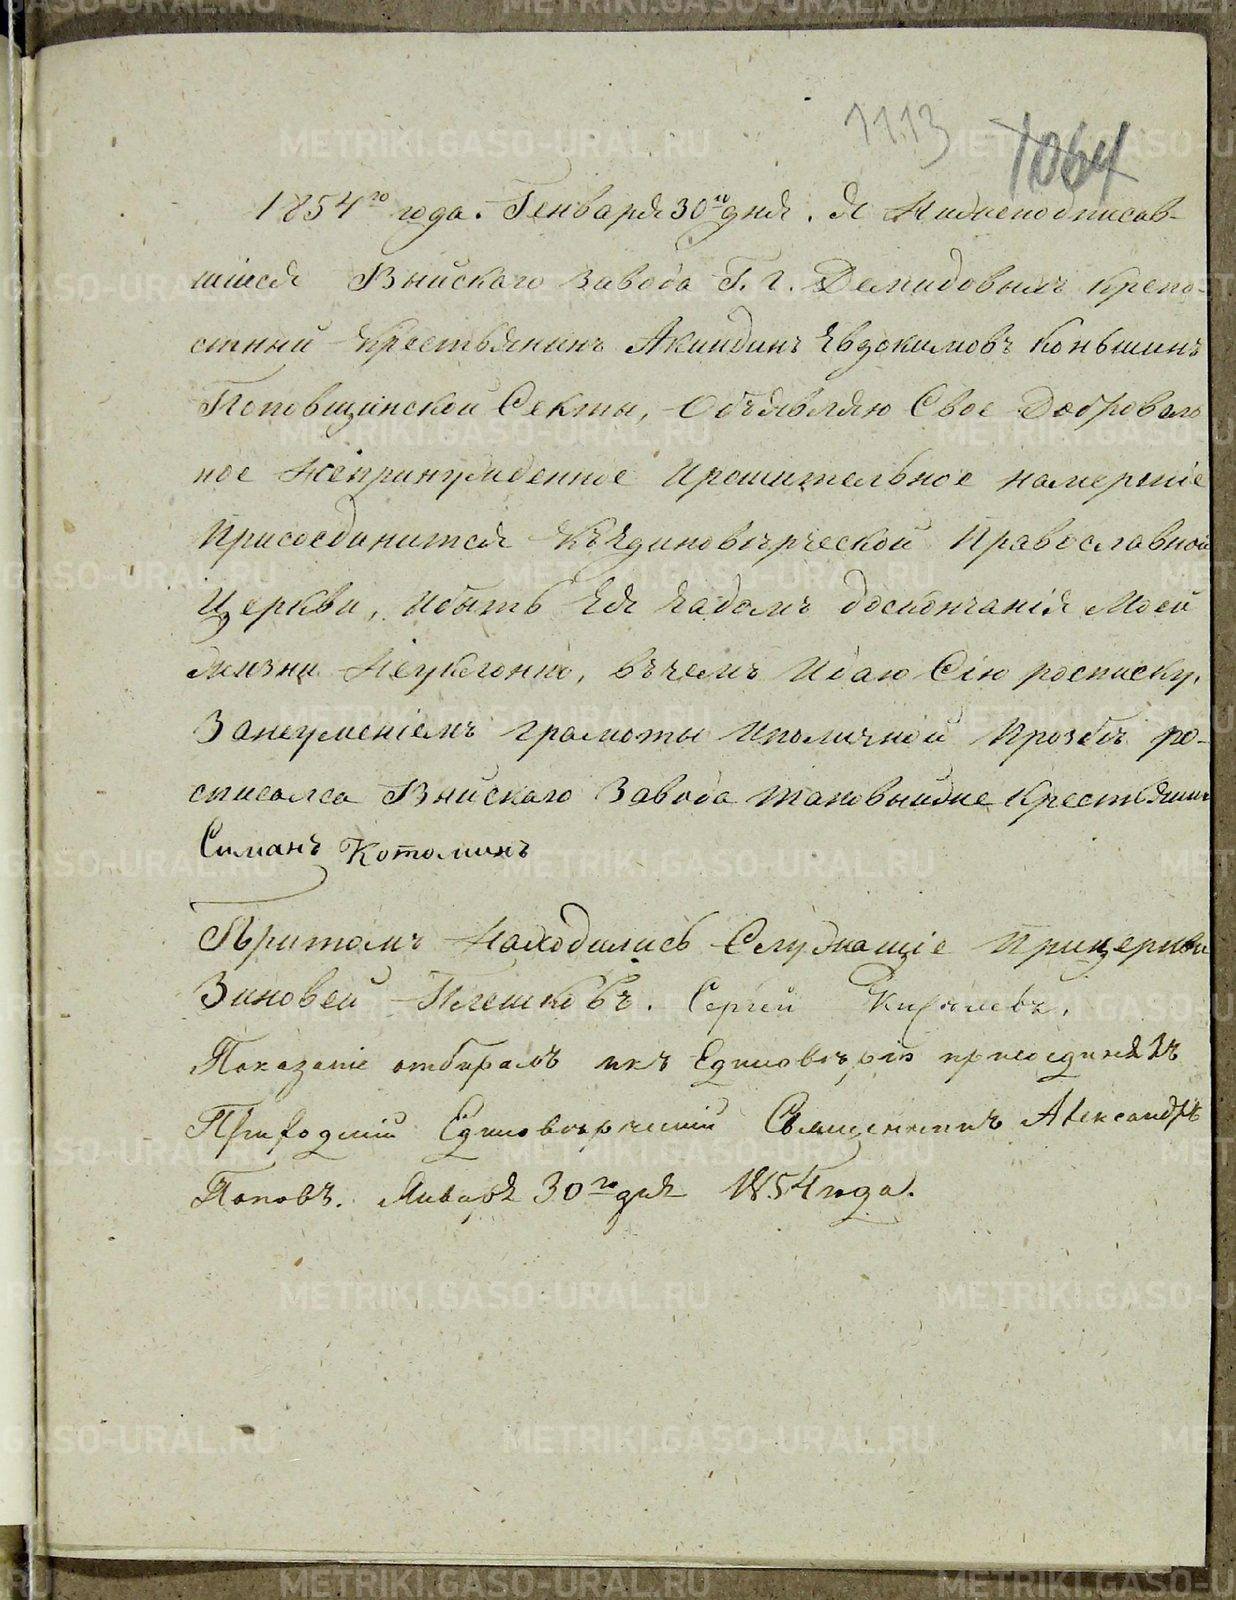 1113
1064
1854го года. Генваря 30го дня. Я Нижеподписав-
шійся Выйскаго Завода Г. г. Демидовымъ крепо-
стный Крестьянинъ Акиндинъ Евдокимовъ Коньшинъ
Поповщинской Секты, Объявляю Свое Доброволь
ное Непринужденное Ирошительное намереніе
Присоединится Къ Единоверческой Православной
Церкви, Ибыть Ея Чадомъ досконьчанія Моей
жизни Неуклонно, въчемъ Идаю Сію росписку,
Занеуменіемъ грамоты Иполичной Прозбе ро-
списался Выйскаго Завода таковыйже Крестьянинъ
Симанъ Котоминъ
Притомъ Находились Служащіе Прицеркви
Зиновей Плешковъ. Сергий
Показаніе отбиралъ икъ Единоверію присоединялъ
Приходский Единоверческий Священникъ Александръ
Поповъ. Января 30го дня 1854 года.
METRIKI.GASO-URAL.RU